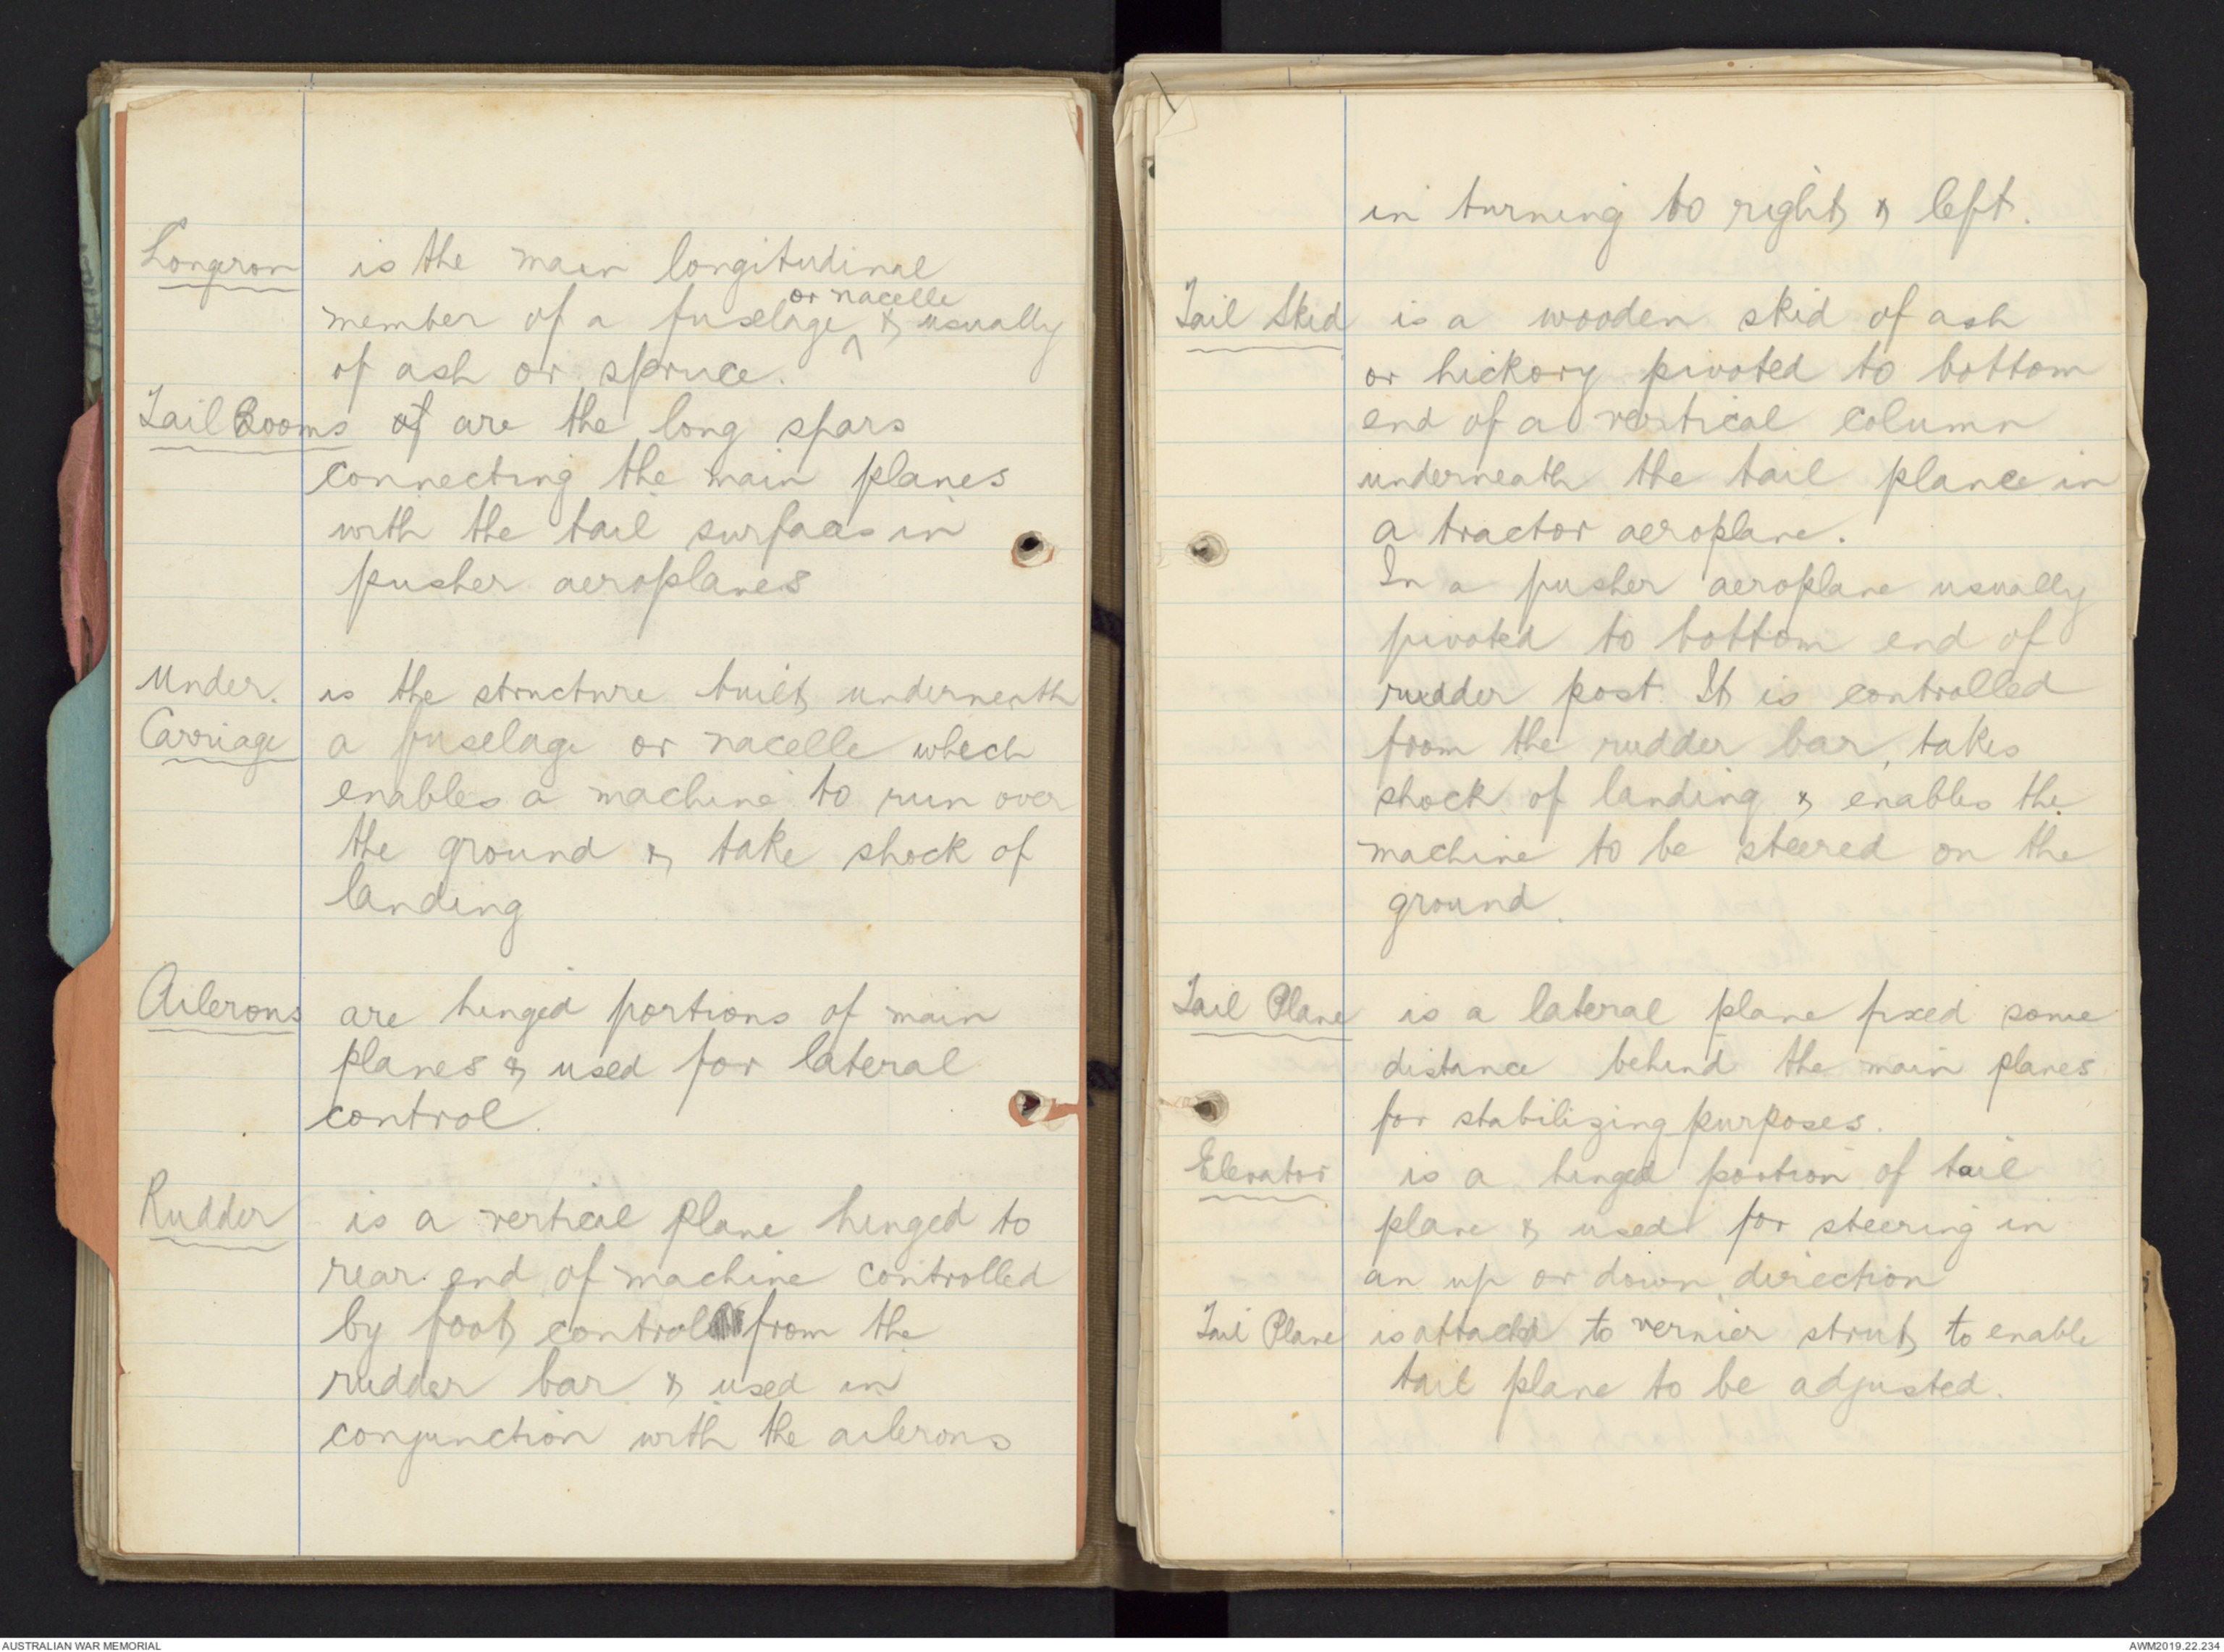 Longeron is the main longitudinal
or nacelle
member of a fuselage ^ & usually
of ash or spruce.
Tail Booms of are the long spars
connecting the main planes
with the tail surfaces in
pusher aeroplanes
Under. is the structure built underneath
Carriage a fuselage or nacelle which
enables a machine to run over
the ground & take shock of
landing
Ailerons are hinged portions of main
planes & used for lateral
control.
Rudder is a vertical plane hinged to
rear end of machine controlled
by foot control from the
rudder bar & used in
conjunction with the ailerons
in turning to right & left.
Tail Skid is a wooden skid of ash
or hickory pivoted to bottom
end of a vertical column
underneath the tail plane in
a tractor aeroplane.
In a pusher aeroplane usually
pivoted to bottom end of
rudder post. It is controlled
from the rudder bar, takes
shock of landing & enables the
machine to be steered on the
ground.
Tail Plane is a lateral plane fixed some
distance behind the main planes
for stabilizing purposes.
Elevator is a hinged portion of tail
plane & used for steering in
an up or down direction
Tail Plane is attached to vernier strut to enable
tail plane to be adjusted.
AUSTRALIAN WAR MEMORIAL
AWM2019.22.234